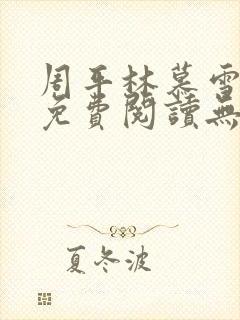 周平林慕雪
免費閱讀無
夏冬波